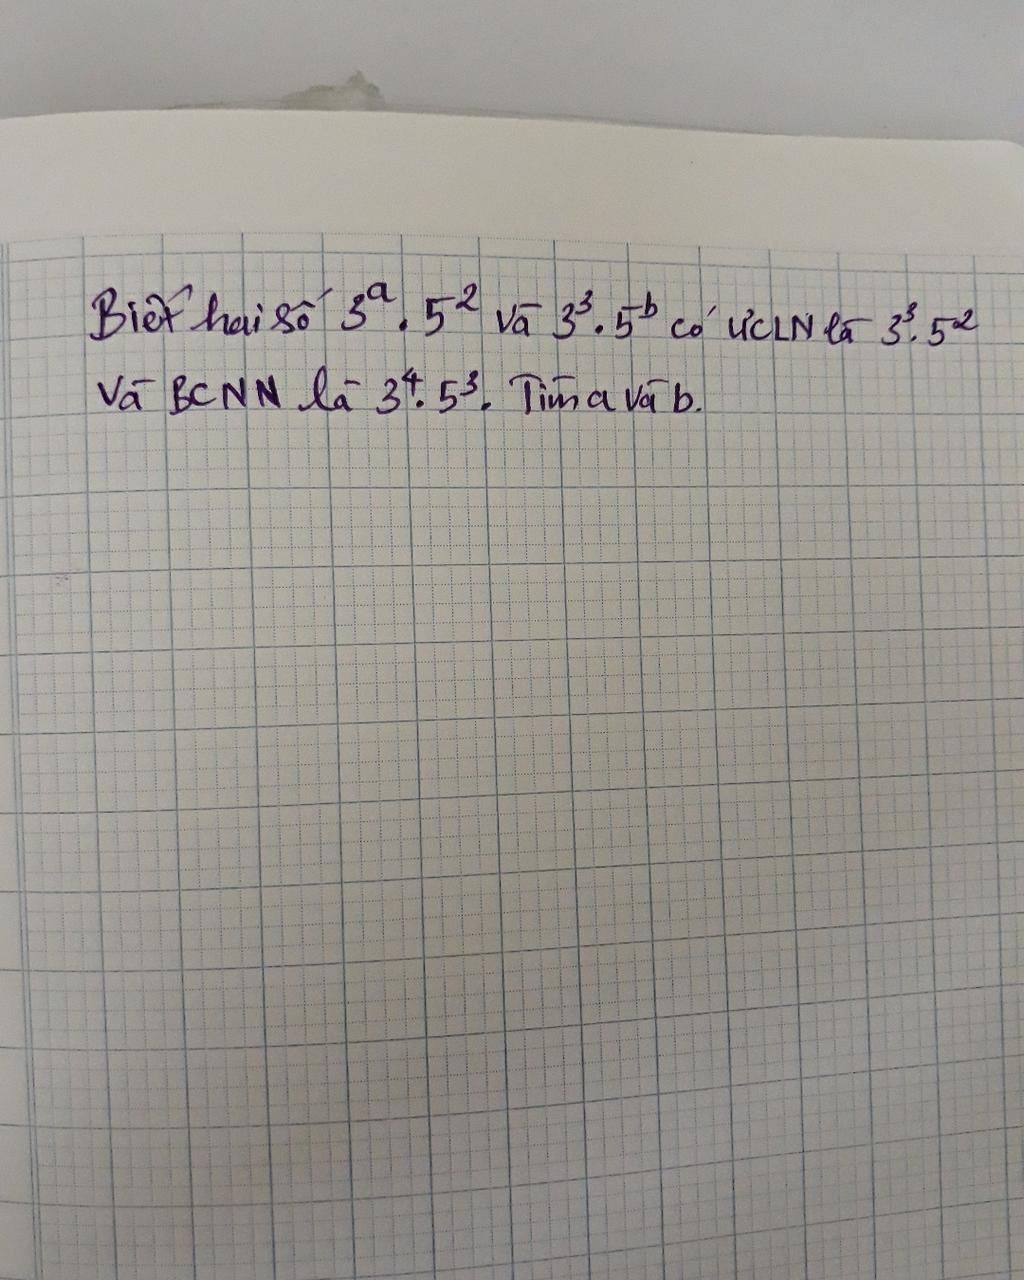 Biết hai số 3ᵃ . 5² và 3³ . 5ᵇ có ƯCLN là 3³ . 5²
và BCNN là 3⁴ . 5³. Tìm a và b.